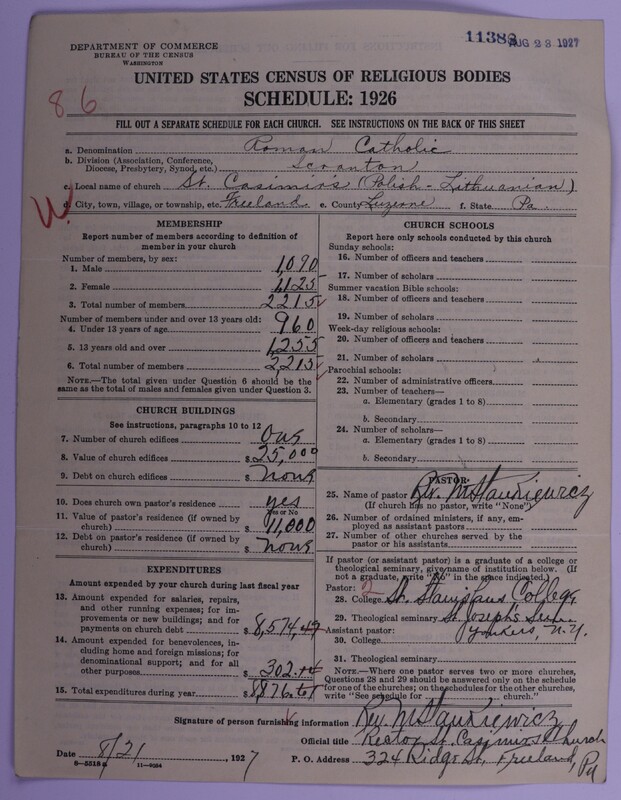 11388 AUG 23 1927
DEPARTMENT OF COMMERCE
BUREAU OF THE CENSUS
WASHINGTON
UNITED STATES CENSUS OF RELIGIOUS BODIES
SCHEDULE: 1926
86
FILL OUT A SEPARATE SCHEDULE FOR EACH CHURCH. SEE INSTRUCTIONS ON THE BACK OF THIS SHEET
a. Denomination Roman Catholic
b. Division (Association, Conference, Diocese, Presbytery, Synod, etc.) Scranton
c. Local name of church St. Casimir's (Polish-Lithuanian)
d. City, town, village, or township, etc. Freeland. e. County Luzerne f. State Pa.
MEMBERSHIP
Report number of members according to definition of
member in your church
Number of members, by sex:
1. Male 1,090
2. Female 1,125
3. Total number of members 2215
Number of members under and over 13 years old:
4. Under 13 years of age 960
5. 13 years old and over 1,255
6. Total number of members 2,215
NOTE.—The total given under Question 6 should be the
same as the total of males and females given under Question 3.
CHURCH BUILDINGS
See instructions, paragraphs 10 to 12
7. Number of church edifices One
8. Value of church edifices $ 25,000
9. Debt on church edifices $ None
10. Does church own pastor's residence yes
Yes or No
11. Value of pastor's residence (if owned by
church) $ 11,000
12. Debt on pastor's residence (if owned by
church) $ None
EXPENDITURES
Amount expended by your church during last fiscal year
13. Amount expended for salaries, repairs,
and other running expenses; for im-
provements or new buildings; and for
payments on church debt $ 8,574.49
14. Amount expended for benevolences, in-
cluding home and foreign missions; for
denominational support; and for all
other purposes $ 302.
15. Total expenditures during year $
CHURCH SCHOOLS
Report here only schools conducted by this church
Sunday schools:
16. Number of officers and teachers
17. Number of scholars
Summer vacation Bible schools:
18. Number of officers and teachers
19. Number of scholars
Week-day religious schools:
20. Number of officers and teachers
21. Number of scholars
Parochial schools:
22. Number of administrative officers
23. Number of teachers—
a. Elementary (grades 1 to 8)
b. Secondary
24. Number of scholars—
a. Elementary (grades 1 to 8)
b. Secondary
PASTOR
25. Name of pastor Rev. M Stankiewicz
(If church has no pastor, write "None")
26. Number of ordained ministers, if any, em-
ployed as assistant pastors
27. Number of other churches served by the
pastor or his assistants
If pastor (or assistant pastor) is a graduate of a college or
theological seminary, give name of institution below. (If
not a graduate, write "No" in the space indicated.)
Pastor: 2
28. College St. Stanislaus College,
29. Theological seminary St. Joseph's Sem.
Assistant pastor: Yonkers, N.Y.
30. College
31. Theological seminary
NOTE.—Where one pastor serves two or more churches,
Questions 28 and 29 should be answered only on the schedule
for one of the churches; on the schedules for the other churches,
write "See schedule for church."
Signature of person furnishing information Rev. M Stankiewicz
Official title Rector St. Casimir's Church
Date 8/21 1927 P. O. Address 324 Ridge St., Freeland, Pa
8—5518a 11—9084